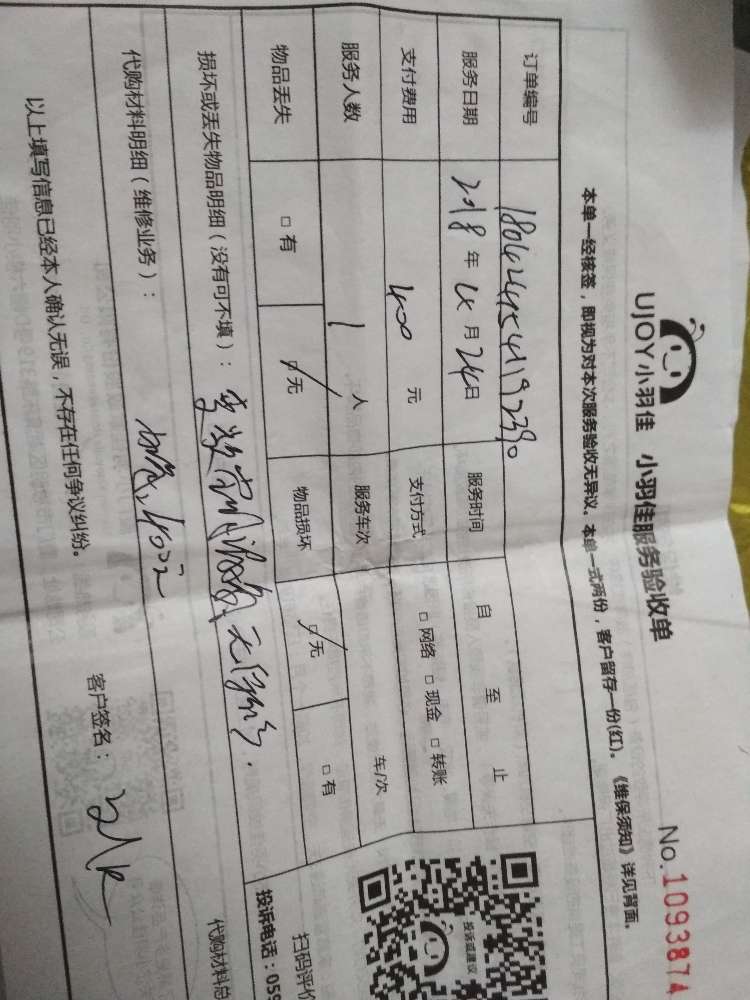 UJOY小羽佳 小羽佳服务验收单
No.1093874
本单一经核签,即视为对本次服务验收无异议。本单一式两份,客户留存一份(红)。《维保须知》详见背面。
订单编号
服务日期 2018年4月24日 服务时间 自 至 止
支付费用 400元 支付方式 □网络 □现金 □转账
服务人数 1人 服务车次 车/次
物品丢失 □有 □无 物品损坏 □无 □有
损坏或丢失物品明细(没有可不填):
代购材料明细(维修业务):
代购材料总
以上填写信息已经本人确认无误,不存在任何争议纠纷。
客户签名:
投诉或建议
扫码评价
投诉电话:059